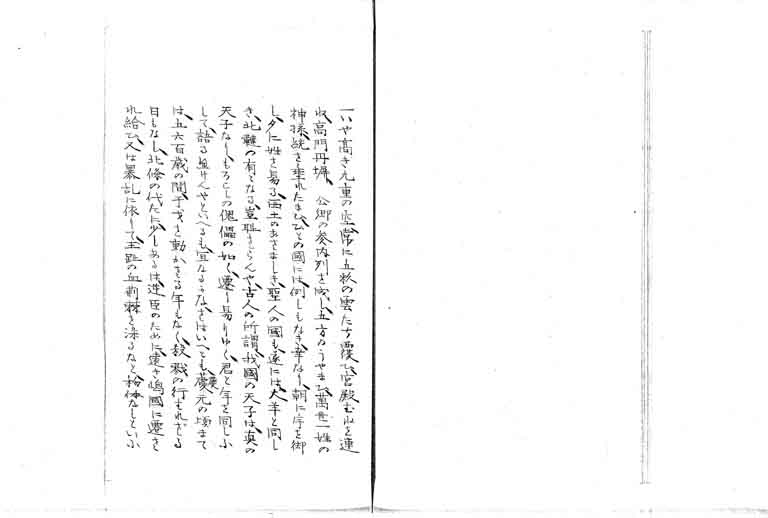 いや高き九重の空常に五彩の雲たな覆ひ宮殿むねを連
ね高門丹墀、公卿の参内列を成し五方のうやまひ萬世一姓の
神孫統を垂れたまひその國には例しもなき幸なり、朝に宇を御
し夕に姓を易る西土のあさましき聖人の國も遂には犬羊と同し
き北鞬の有となる豈耻さらんや古人の所謂我國の天子は真の
天子なりもろこしの傀儡の如く遷り易りゆく君と年を同しふ
して語る
といへるも宜なるかなさはいへとも慶元の頃まて
は五六百歳の間干戈を動かさる年もなく殺戮の行はれざる
日もなし北條の代たに少しあるは逆臣のために遠き嶋國に遷さ
れ給ひ又は暴乱に依りて玉趾の血荊棘を染るなと勿体なしといふ